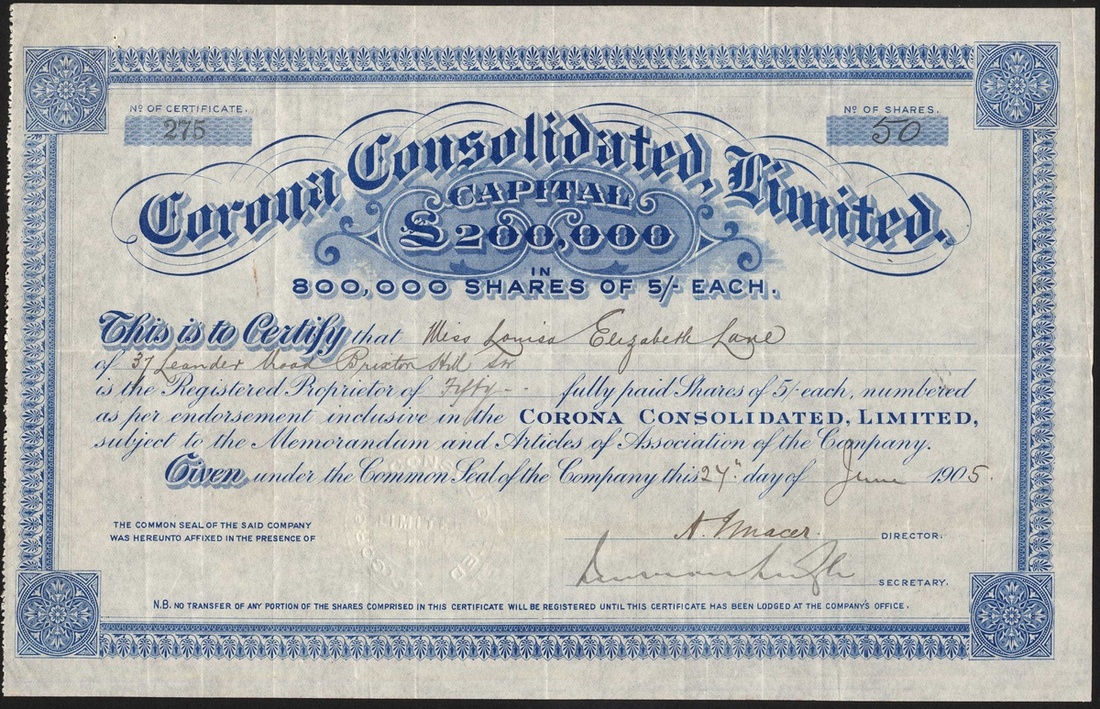 Nº OF CERTIFICATE.
275
Nº OF SHARES.
50
Corona Consolidated, Limited.
CAPITAL
£200,000
IN
800,000 SHARES OF 5/- EACH.
This is to Certify that Miss Louisa Elizabeth Lane
of 37 Leander Road Brixton Hill SW
is the Registered Proprietor of Fifty fully paid Shares of 5/- each, numbered
as per endorsement inclusive in the CORONA CONSOLIDATED, LIMITED,
subject to the Memorandum and Articles of Association of the Company.
Given under the Common Seal of the Company this 27th day of June 1905.
THE COMMON SEAL OF THE SAID COMPANY
WAS HEREUNTO AFFIXED IN THE PRESENCE OF
DIRECTOR.
SECRETARY.
N.B. NO TRANSFER OF ANY PORTION OF THE SHARES COMPRISED IN THIS CERTIFICATE WILL BE REGISTERED UNTIL THIS CERTIFICATE HAS BEEN LODGED AT THE COMPANY'S OFFICE.